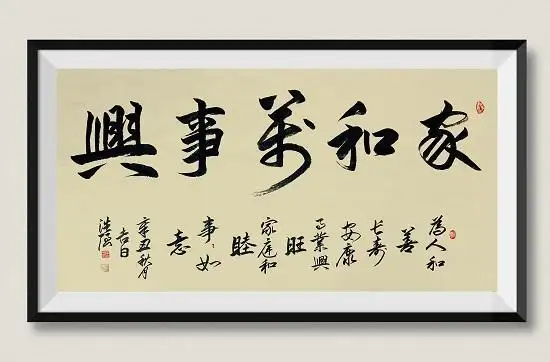 家和萬事興
為人和
善
长寿
安康
事業興
旺
家庭和
睦
事〻如
意
辛丑秋月
吉日